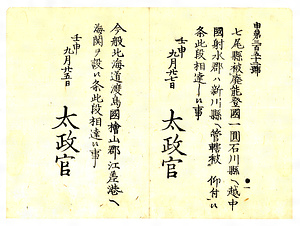 申第二百五十三號
七尾縣被廢能登國一圓石川縣ヘ越中
國射水郡ハ新川縣ヘ管轄被 仰付候
條此段相達候事
壬申
九月廿七日
太政官
今般北海道渡島國檜山郡江差港ヘ
海関ヲ設ケ候條此段相達候事
壬申
九月廿五日
太政官